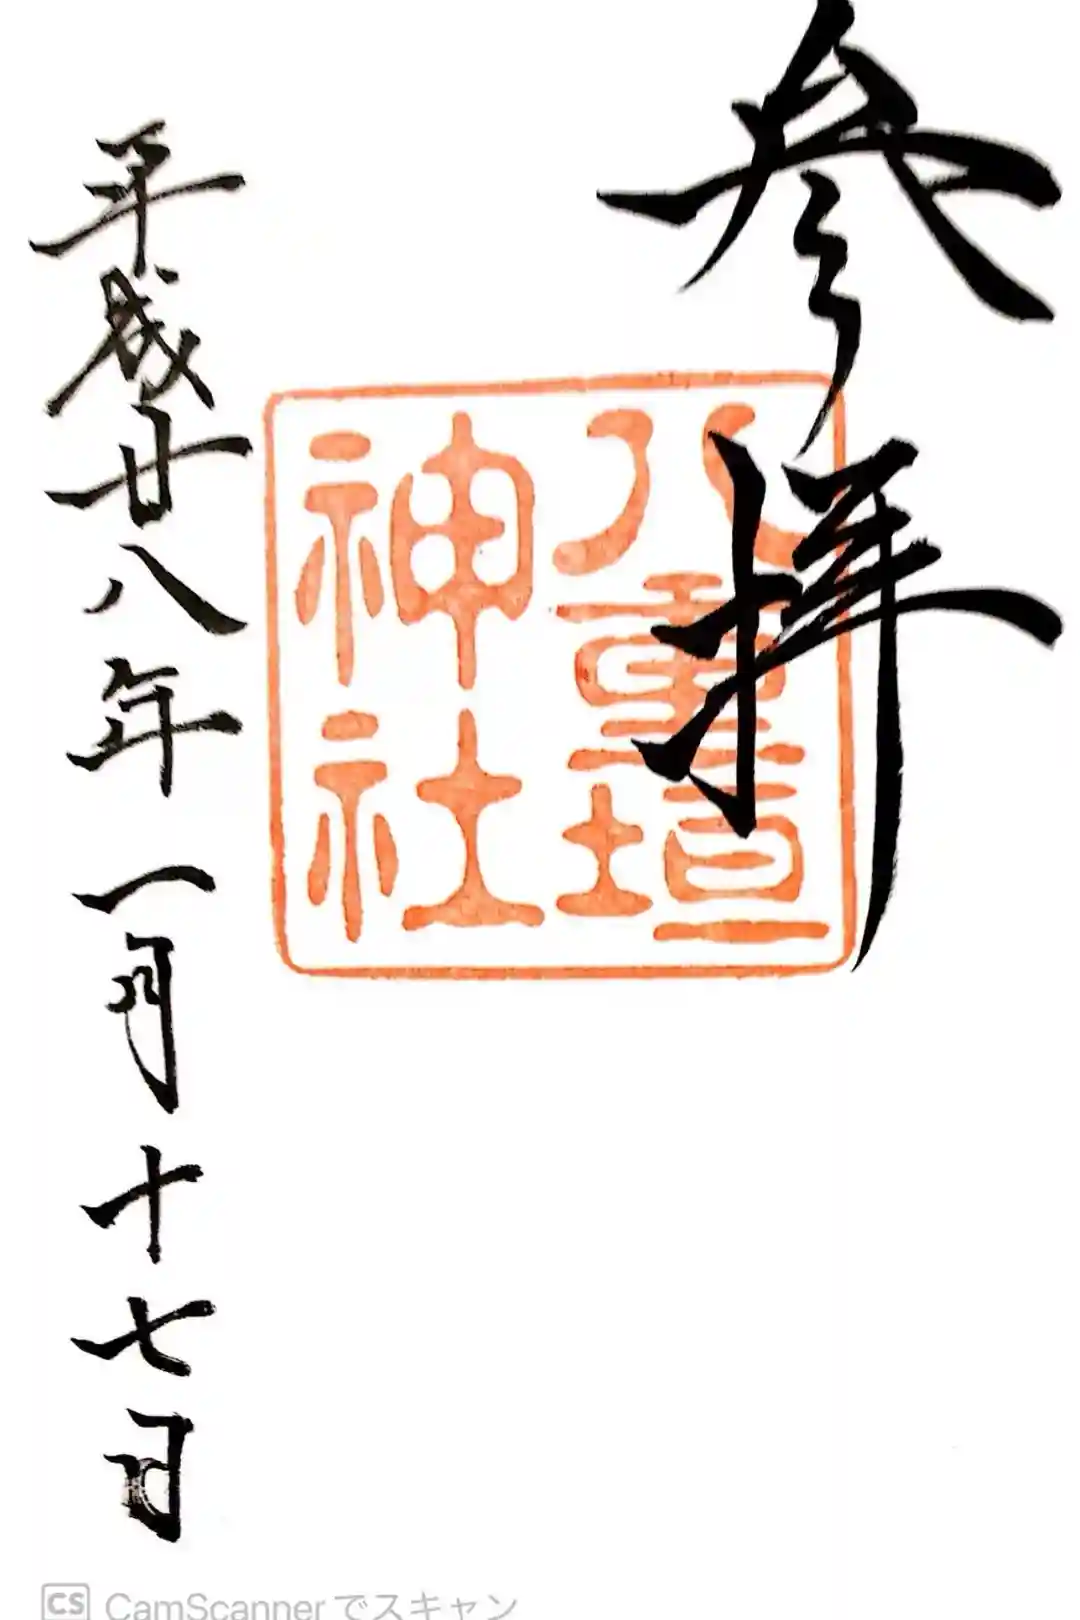 参拝
八重垣
神社
平成廿八年一月十七日
CS CamScannerでスキャン